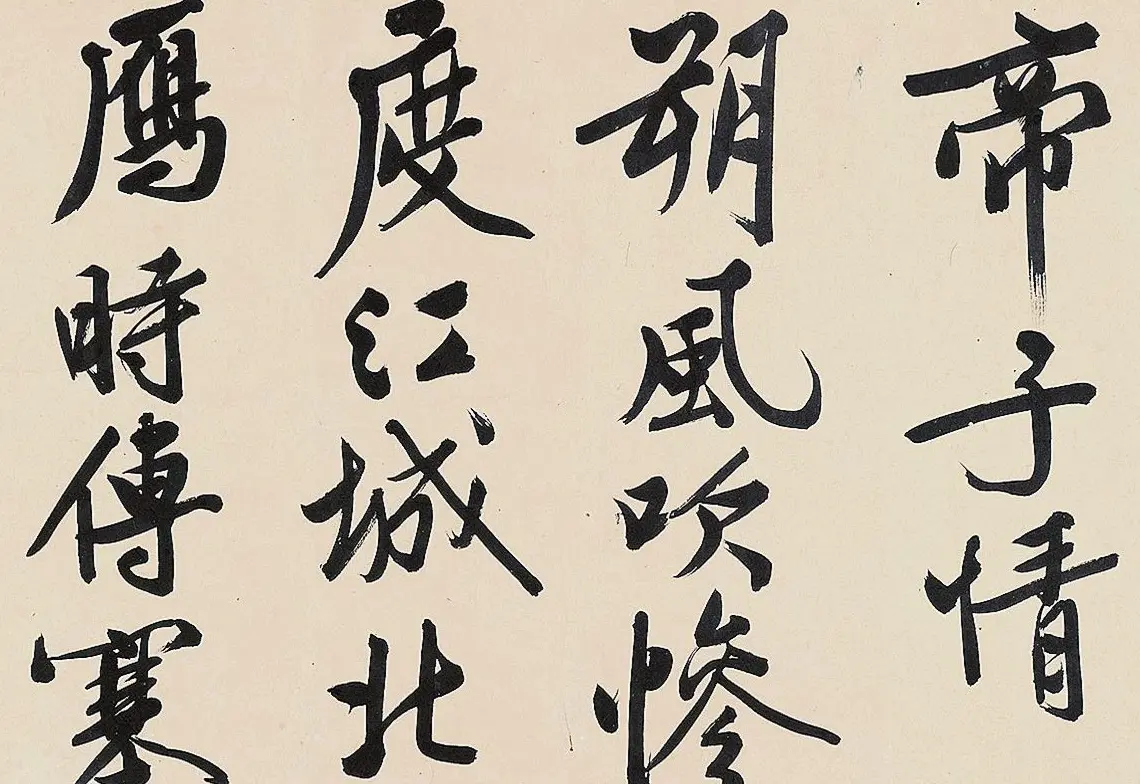 帝子情
朔風吹慘
度江城北
鴈時傳塞